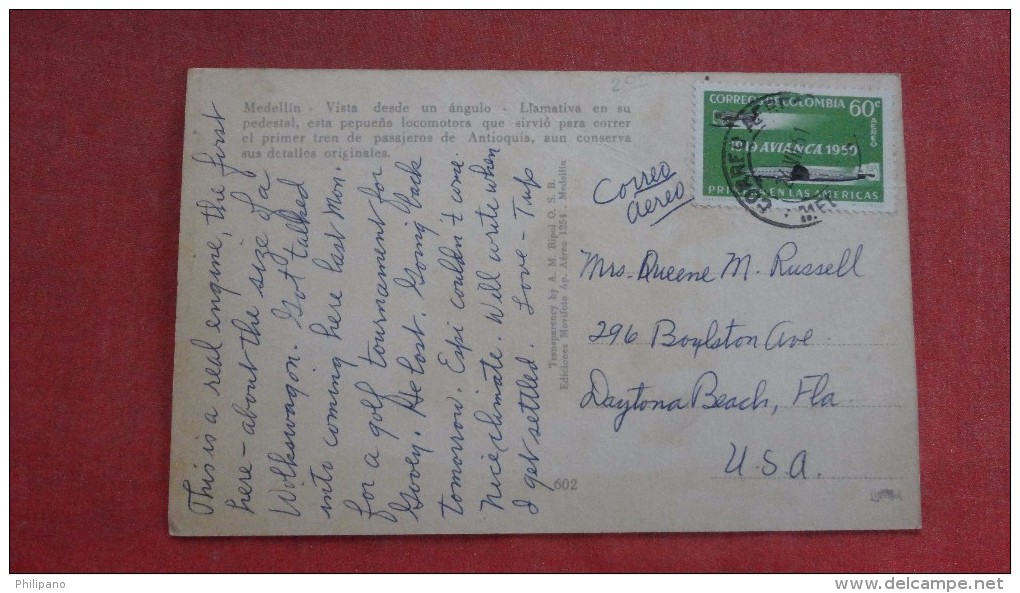 Medellín - Vista desde un ángulo - Llamativa en su
pedestal, esta pepueña locomotora que sirvió para correr
el primer tren de pasajeros de Antioquia, aun conserva
sus detalles originales.
This is a real engine, the first
here - about the size of a
Volkswagon. Got talked
into coming here last Mon.
for a golf tournament for
Govey. He lost. Going back
tomorrow. Espi couldn't come.
Nice climate. Will write when
I get settled. Love - Tup
602
Transparency by A. M. Bipol O. S. B.
Ediciones Movifoto Ap. Aéreo 1254 . Medellín
CORREOS DE COLOMBIA 60c
AEREO
1919 AVIANCA 1959
EN LAS AMERICAS
Correo
aereo
Mrs. Queene M. Russell
296 Boylston Ave.
Daytona Beach, Fla
U.S.A.
Philipano
www.delcampe.net